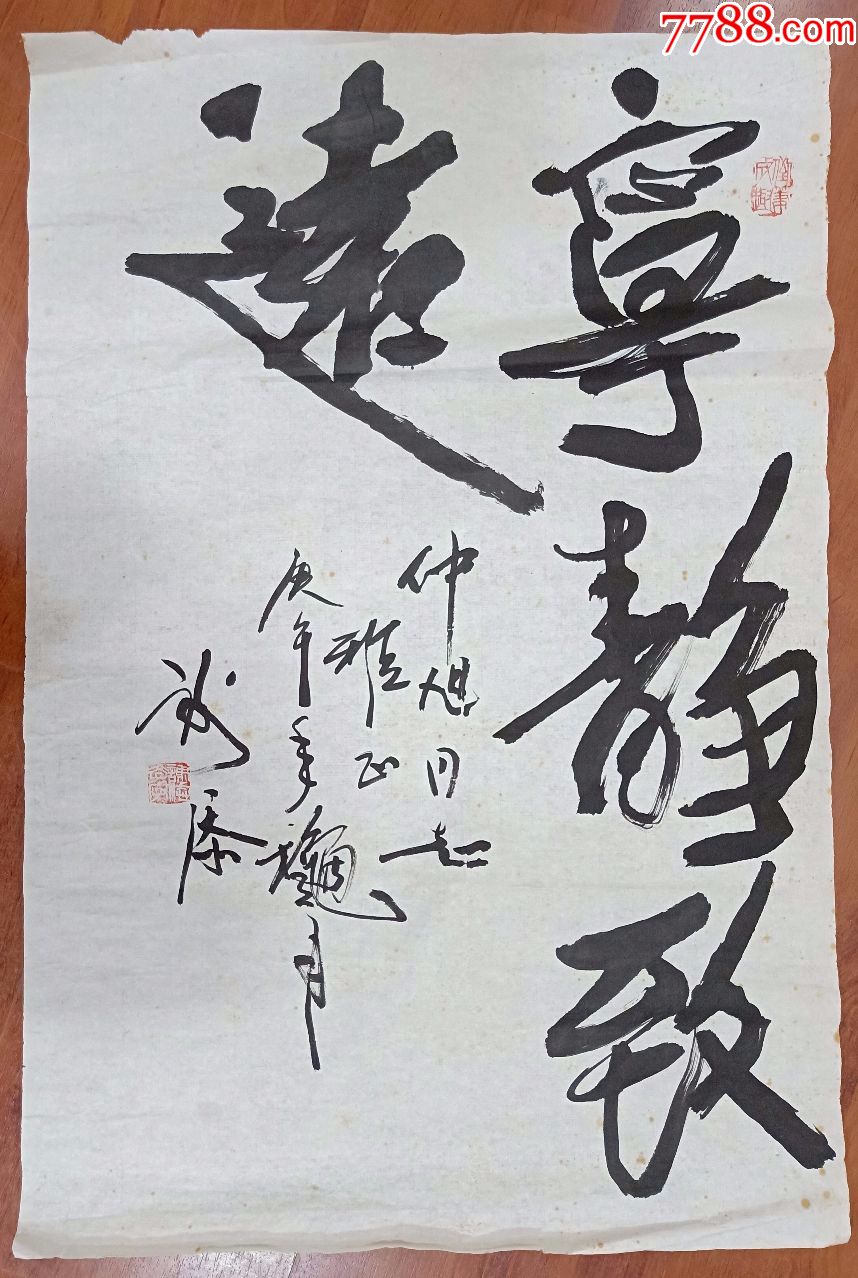 寧靜致
遠
仲旭同志
雅正
庚午年臘月
7788.com